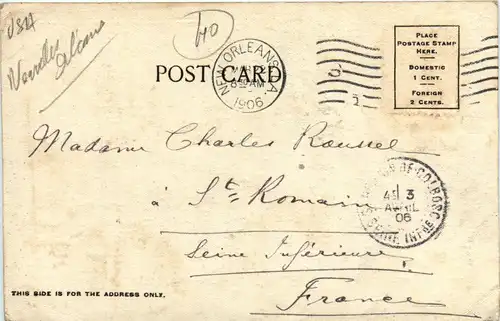 USA
Nouvelle
Orléans
40
NEW ORLEANS, LA
8 AM
1906
POST CARD
PLACE
POSTAGE STAMP
HERE.
DOMESTIC
1 CENT.
FOREIGN
2 CENTS.
Madame Charles Roussel
à St. Romain
Seine Inférieure
France
ST ROMAIN DE COLBOSC
3
AVRIL
06
SEINE INFRE
THIS SIDE IS FOR THE ADDRESS ONLY.